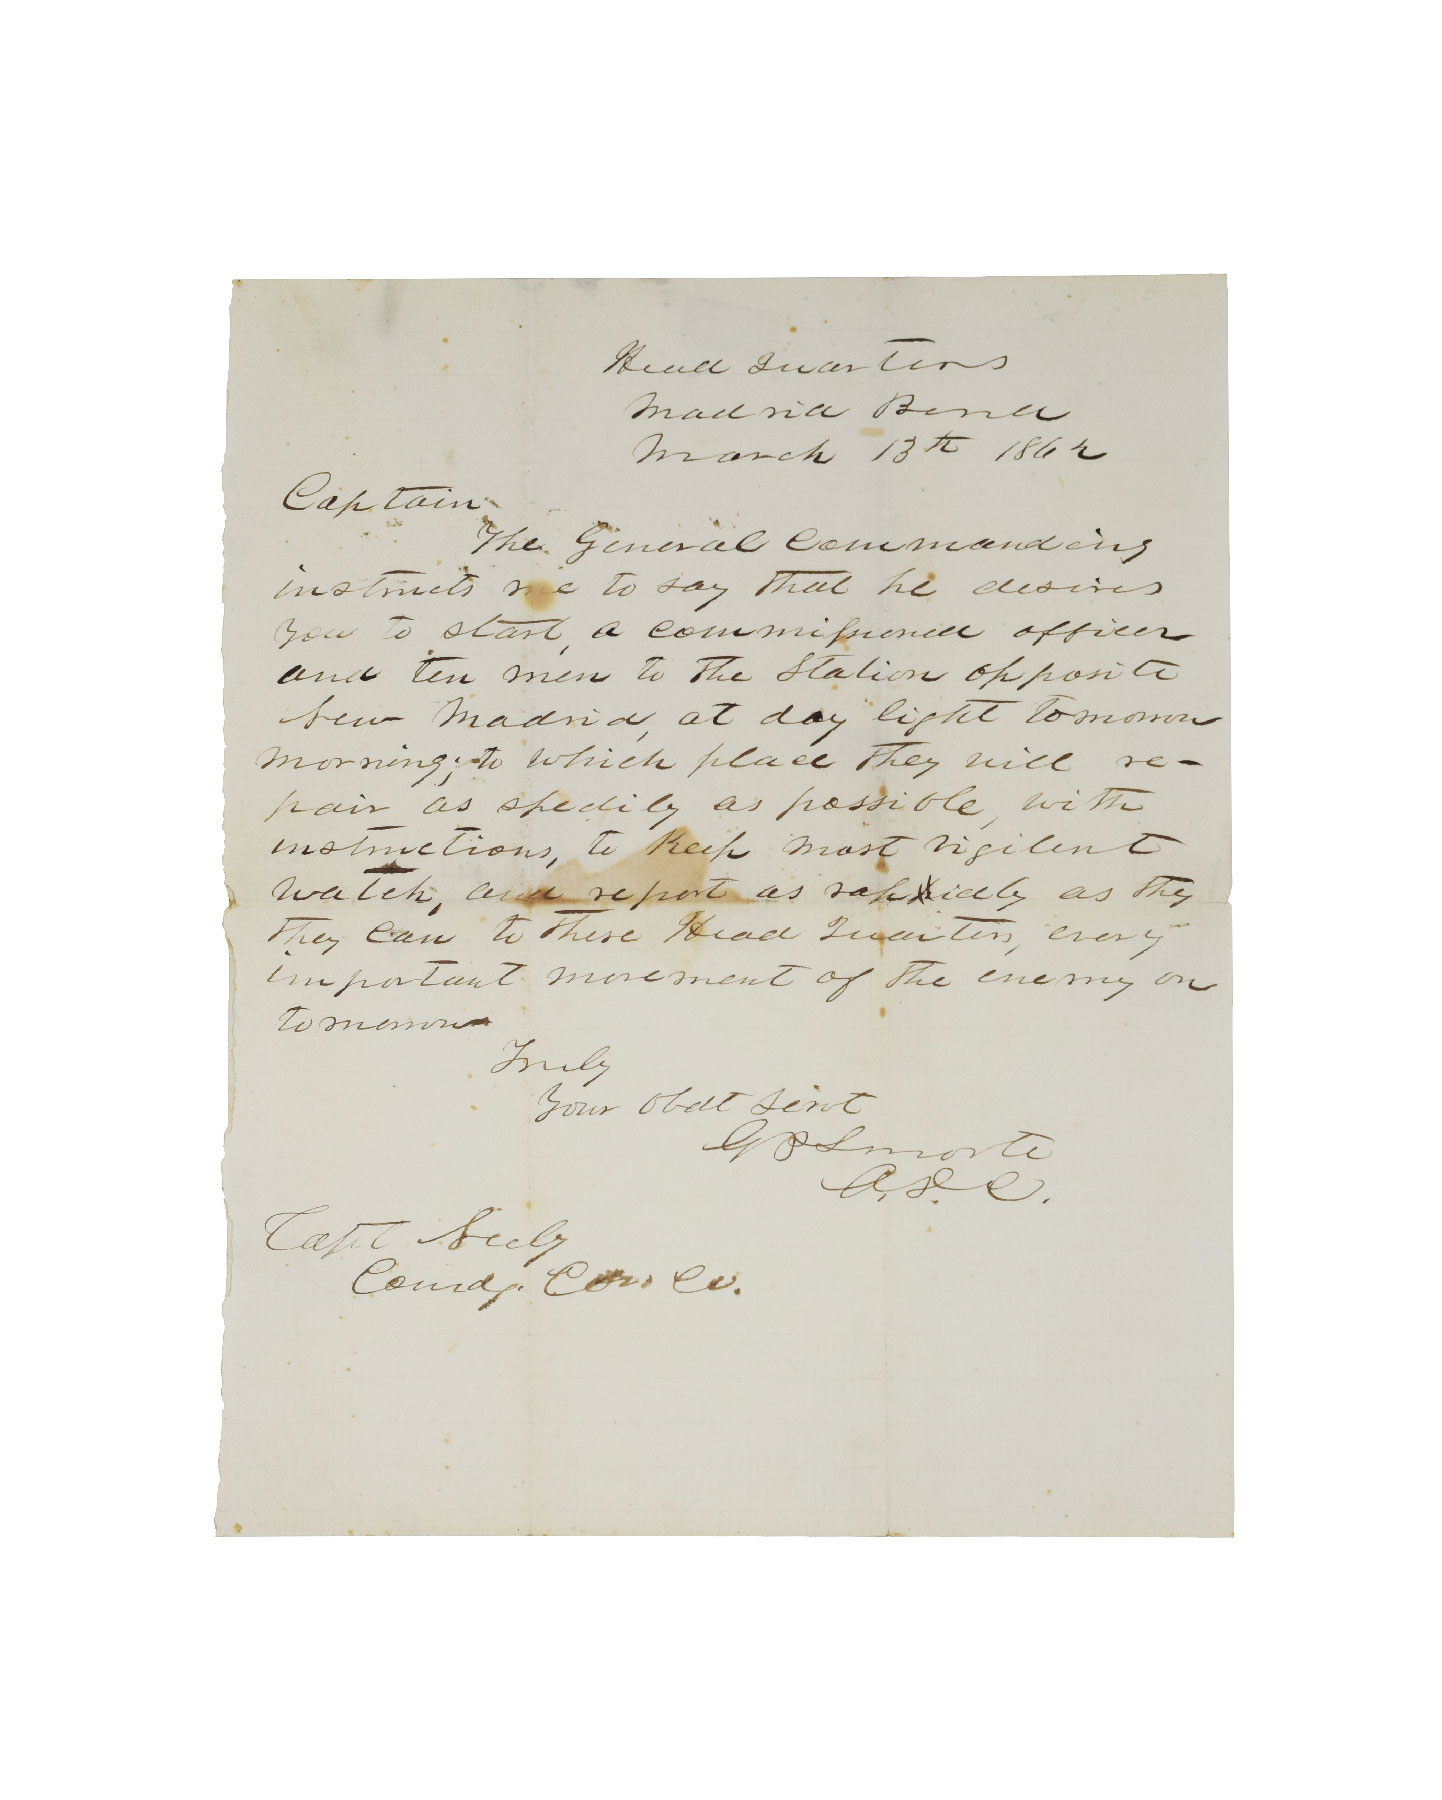 Head Quarters
Madrid Bend
March 13th 1862
Captain
The General Commanding
instructs me to say that he desires
you to start, a commissioned officer
and ten men to the Station opposite
New Madrid, at day light tomorrow
morning; to which place they will re-
pair as spedily as possible, with
instructions, to keep most vigilent
watch, and report as rapidly as they
they can to these Head Quarters, every
important movement of the enemy on
tomorrow
Truly
Your Obdt Servt
A. D. C.
Capt Neely
Comdg. Co.